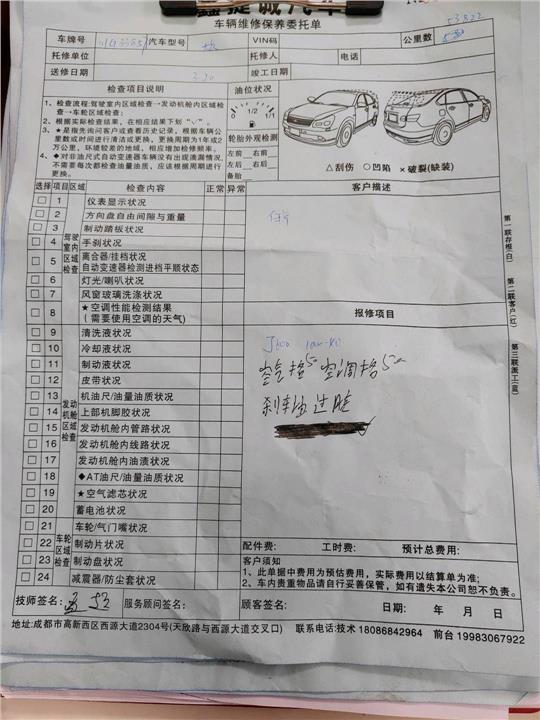 车辆维修保养委托单
车牌号 汽车型号 VIN码 公里数 53822
托修单位 托修人 电话
送修日期 3.20 竣工日期
检查项目说明 油位状况
1、检查流程:驾驶室内区域检查→发动机舱内区域检查→车轮区域检查;
2、根据实际检查结果,在相应结果下划“✓”。
3、★是指先询问客户或查看历史记录,根据车辆公里数或时间进行清洁或更换,更换周期为1年或2万公里,环境较差的地域,相应增加检修频率。
4、◆对非油尺式自动变速器车辆没有出现泄漏情况,不需要每次都检查油量油质,应该根据周期进行更换。
0 1/2 1/1
轮胎外观检测
左前 右前
左后 右后
备胎
△刮伤 ○凹陷 ×破裂(缺装)
选择 项目 区域 检查内容 正常 异常 客户描述
驾驶室内区域检查
1 仪表显示状况
2 方向盘自由间隙与重量
3 制动踏板状况
4 手刹状况
5 离合器/挂档状况
自动变速器检测进档平顺状态
6 灯光/喇叭状况
7 风窗玻璃洗涤状况
8 ★空调性能检测结果
(需要使用空调的天气)
报修项目
发动机舱区域检查
9 清洗液状况
10 冷却液状况
11 制动液状况
12 皮带状况
13 机油尺/油量油质状况
14 上部机脚胶状况
15 发动机舱内管路状况
16 发动机舱内线路状况
17 发动机舱内油渍状况
18 ◆AT油尺/油量油质状况
19 ★空气滤芯状况
20 蓄电池状况
空气格50 空调格50
刹车油过脏
车轮区域检查
21 车轮/气门嘴状况
22 制动片状况
23 制动盘状况
24 减震器/防尘套状况
配件费: 工时费: 预计总费用:
客户须知
1、此单据中费用为预估费用,实际费用以结算单为准;
2、车内贵重物品请自行妥善保管,如有遗失本公司恕不负责。
第一联存根(白) 第二联客户(红) 第三联派工(蓝)
技师签名: 服务顾问签名: 顾客签名: 日期: 年 月 日
地址:成都市高新西区西源大道2304号(天欣路与西源大道交叉口) 联系电话:技术 18086842964 前台 19983067922